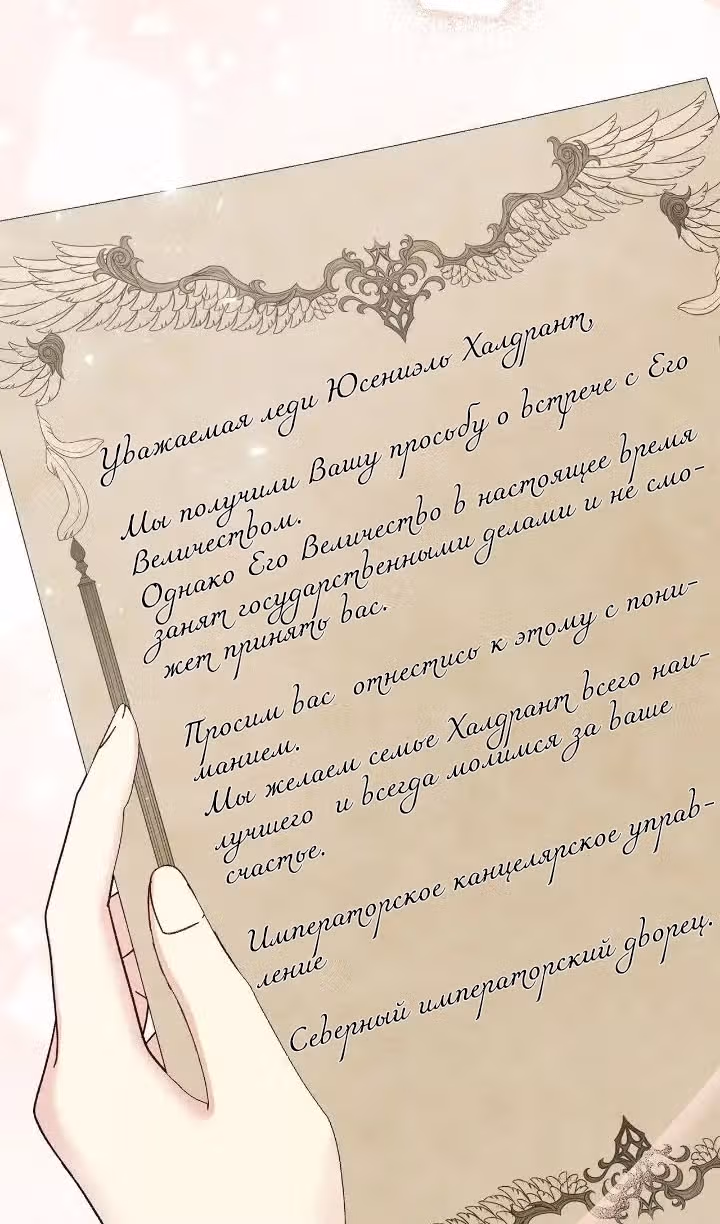 Уважаемая леди Юсениэль Халдрант,
Мы получили Вашу просьбу о встрече с Его
Величеством.
Однако Его Величество в настоящее время
занят государственными делами и не смо-
жет принять вас.
Просим вас отнестись к этому с пони-
манием.
Мы желаем семье Халдрант всего наи-
лучшего и всегда молимся за ваше
счастье.
Императорское канцелярское управ-
ление
Северный императорский дворец.